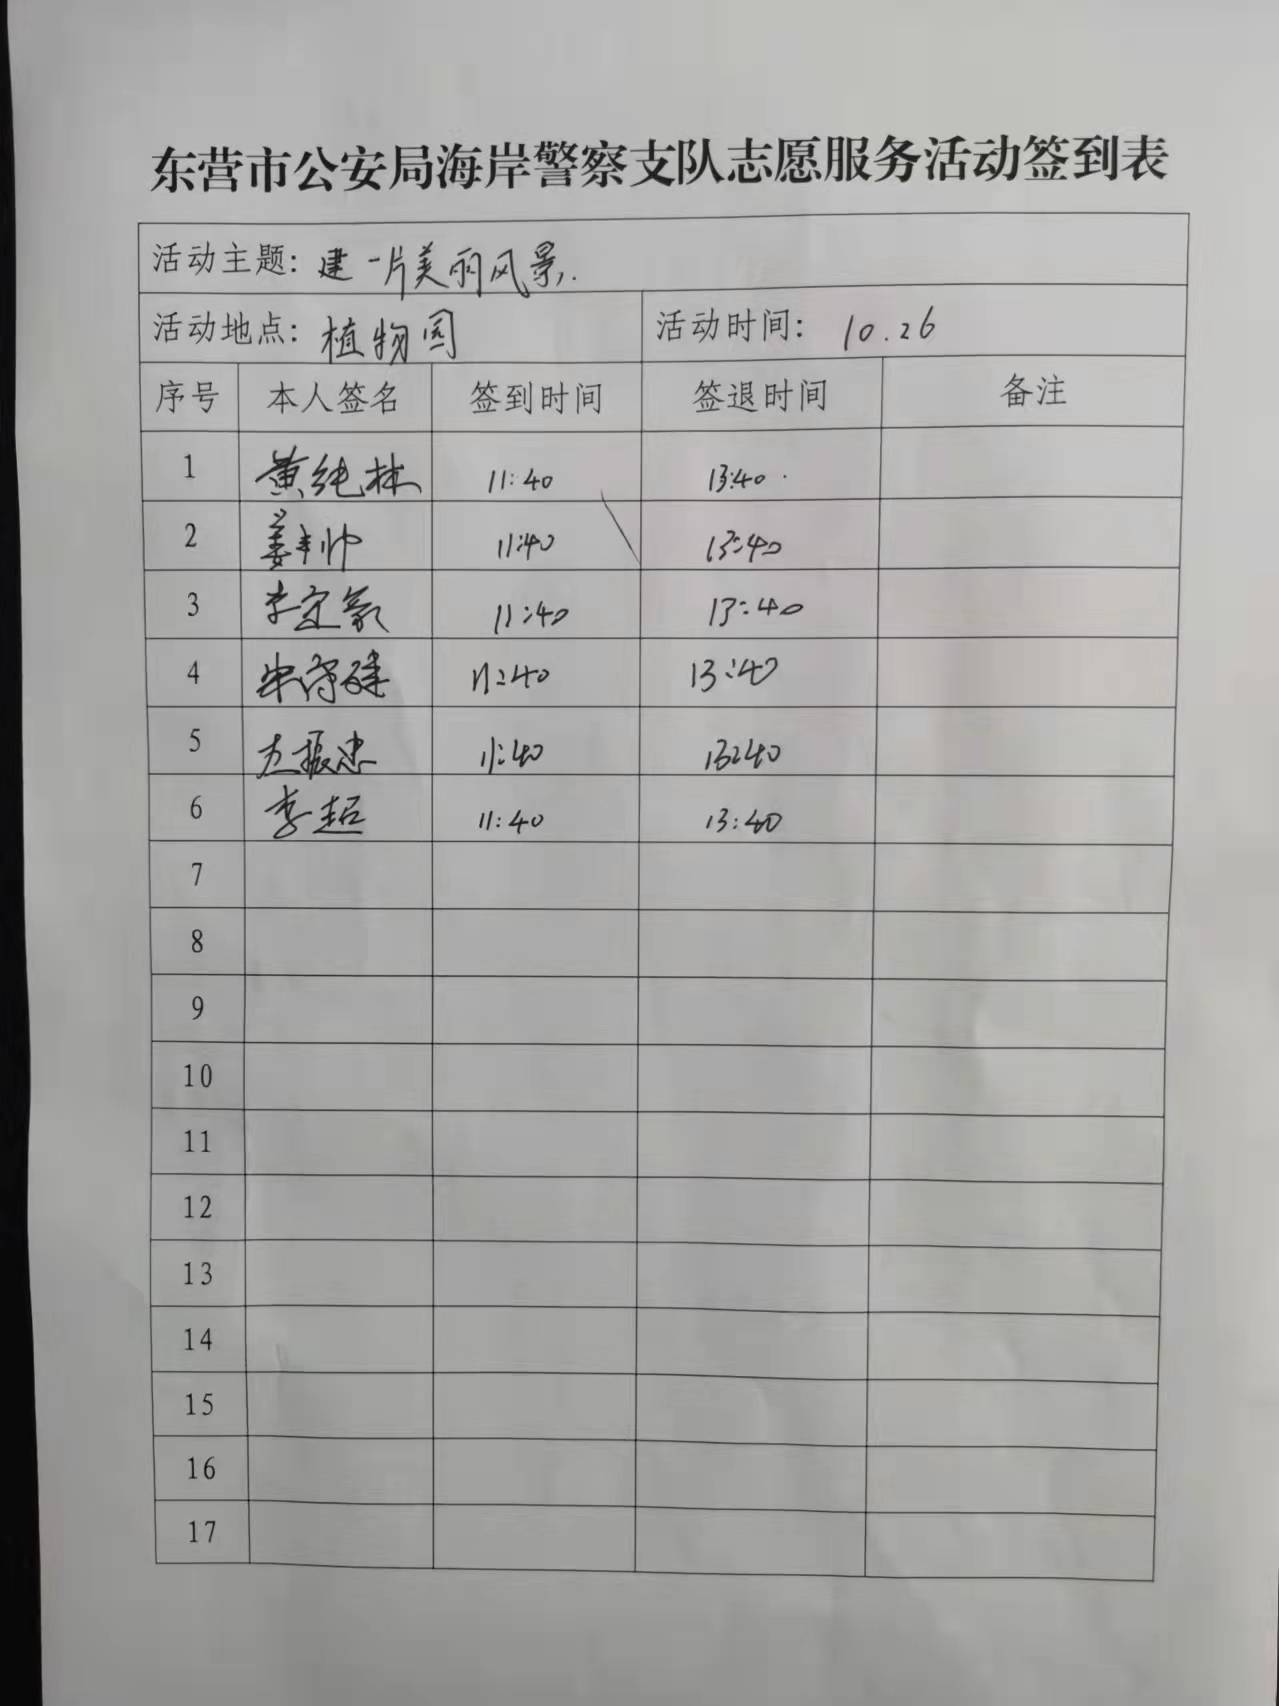 东营市公安局海岸警察支队志愿服务活动签到表
活动主题: 建一片美丽风景.
活动地点: 植物园 活动时间: 10.26
序号 本人签名 签到时间 签退时间 备注
1 黄纯林 11:40 13:40
2 姜帅 11:40 13:40
3 李定豪 11:40 13:40
4 11:40 13:40
5 左振忠 11:40 13:40
6 李超 11:40 13:40
7
8
9
10
11
12
13
14
15
16
17